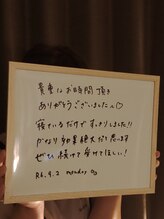 貴重なお時間頂き
ありがとうございました♡
寝ているだけですっきりしました!!
かなり効果絶大だと思います
ぜひ続けて受けてほしい!
R6.9.2 monday